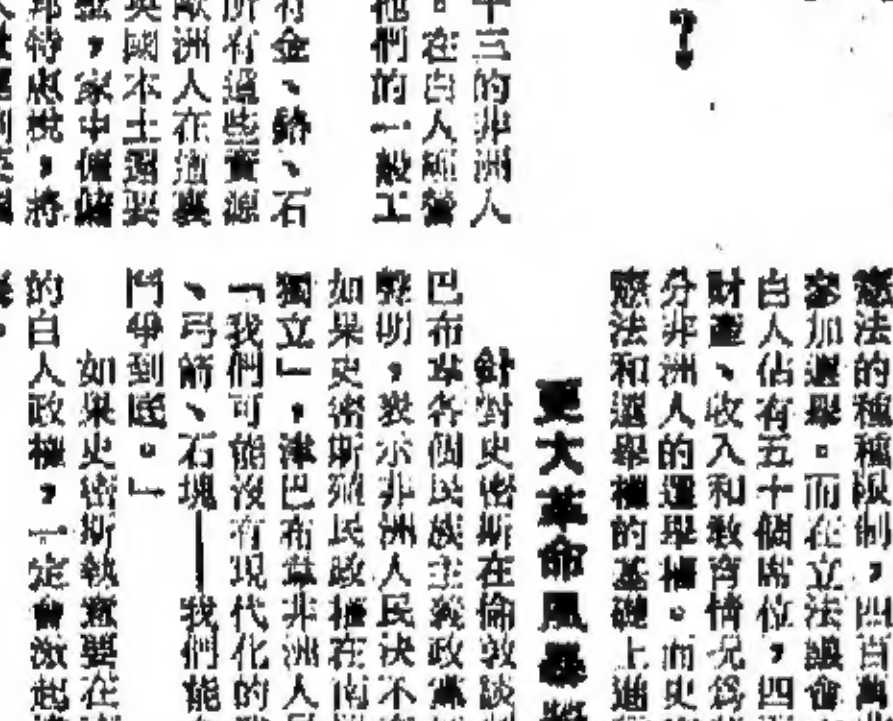 十三的非洲人
。在白人經營
他們的一般工
有金、鉻、石
所有這些資源
歐洲人在這裏
英國本土還要
，家中僱
憲法的種種限制，四百萬
參加選舉。而在立法議會
白人佔有五十個席位，四
財產、收入和教育情況爲
分非洲人的選舉權。而史
憲法和選舉權的基礎上進
更大革命風暴將
針對史密斯在倫敦談
巴布韋各個民族主義政黨
聲明，表示非洲人民決不
如果史密斯殖民政權在南
獨立」，津巴布韋非洲人民
「我們可能沒有現代化的
、弓箭、石塊——我們能
鬥爭到底。」
如果史密斯執意要在
的白人政權，一定會激起